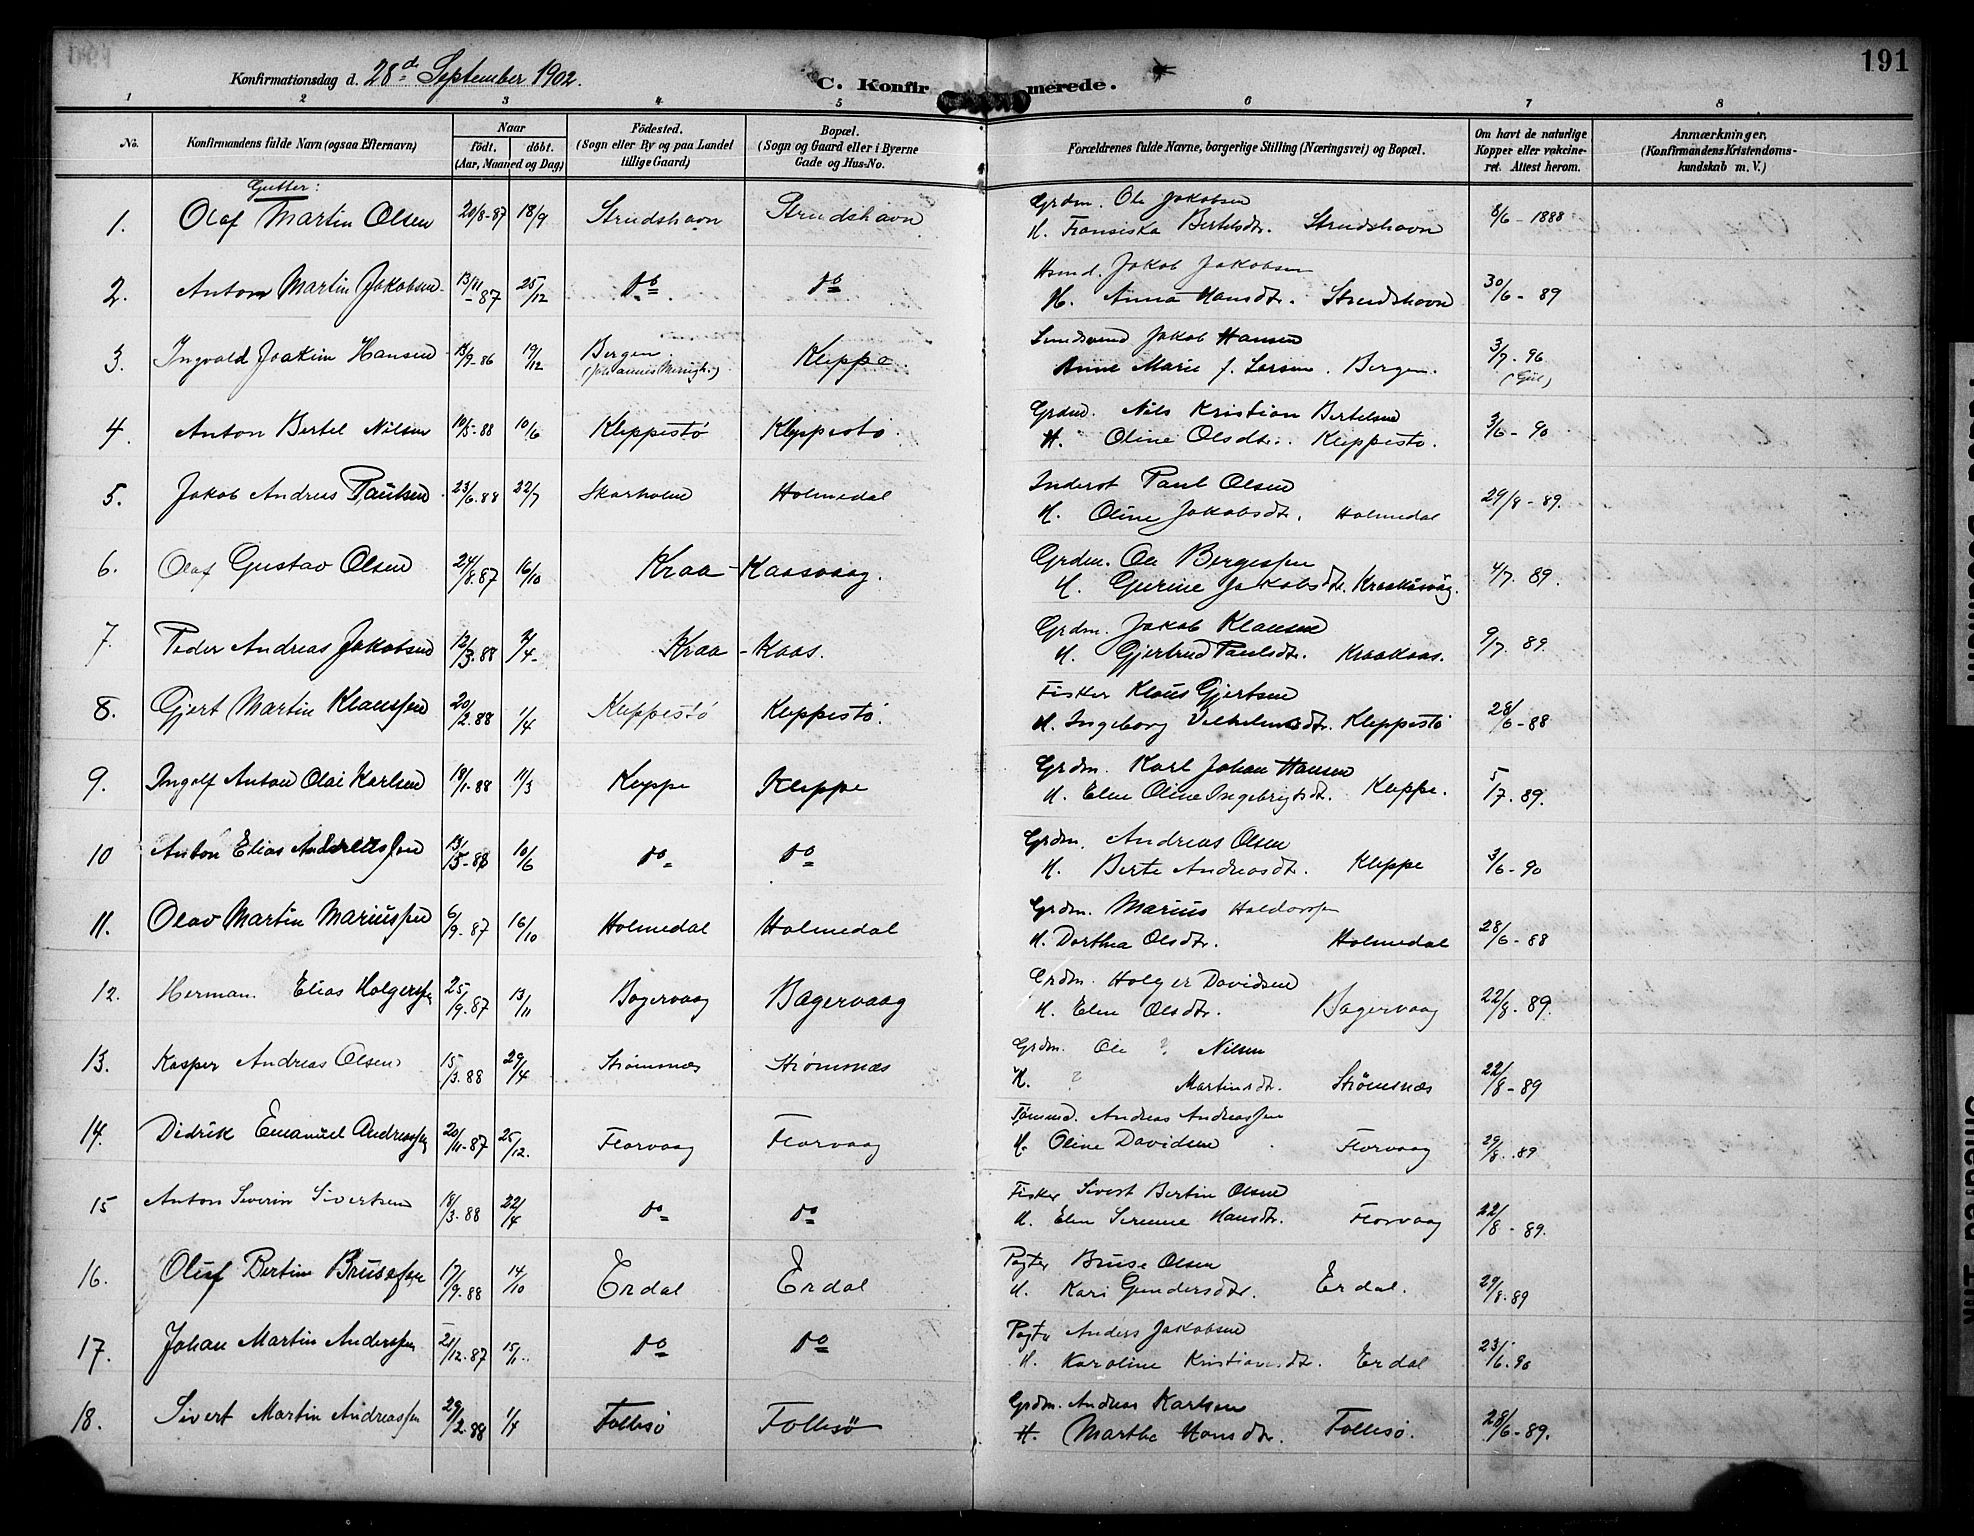 191
Konfirmationsdag d. 28d September 1902.
C. Konfirmerede.
1 2 3 4 5 6 7 8
No.
Konfirmandens fulde Navn (ogsaa Efternavn)
Naar
født. døbt.
(Aar, Maaned og Dag)
Fødested.
(Sogn eller By og paa Landet
tillige Gaard)
Bopæl.
(Sogn og Gaard eller i Byerne
Gade og Hus-No.
Forældrenes fulde Navne, borgerlige Stilling (Næringsvei) og Bopæl.
Om havt de naturlige
Kopper eller vakcine-
ret. Attest herom.
Anmærkninger,
(Konfirmandens Kristendoms-
kundskab m. V.)
Gutter:
1. Olaf Martin Olsen 20/8-87 18/9 Strudshavn Strudshavn Grdm. Ole Jakobsen
H. Fransiska Bertelsdtr. Strudshavn 8/6-1888
2. Anton Martin Jakobsen 13/11-87 25/12 do do Hsmd. Jakob Jakobsen
H. Anna Hansdtr. Strudshavn 30/6-89
3. Ingvald Joakim Hansen /9-86 19/12 Bergen Kleppe Jakob Hansen
Anne Marie f. Larsen. Bergen. 3/7-96
4. Anton Bertel Nilsen 10/5-88 10/6 Kleppestø Kleppestø Grdm. Nils Kristian Bertelsen
H. Oline Olsdtr. Kleppestø. 3/6-90
5. Jakob Andreas Paulsen 23/6.88 22/7 Skarholm Holmedal Inderst Paul Olsen
H. Oline Jakobsdtr. Holmedal 29/8-89.
6. Olaf Gustav Olsen 24/8.87 16/10 Kraa-Kaasvaag. Grdm. Ole Bergessen
H. Gurine Jakobsdtr. Kraakåsvåg. 4/7.89.
7. Peder Andreas Jakobsen 12/3.88 2/4- Kraa-Kaas. Grdm. Jakob Klausen
H. Gjertrud Paulsdtr. Kraakaas. 9/7.89.
8. Gjert Martin Klaussen 20/2.88 1/4 Kleppestø Kleppestø. Fisker Klaus Gjertsen
H. Ingeborg Vilhelmsdtr. Kleppestø 28/6-88
9. Ingolf Anton Olai Karlsen 18/1-88 11/3 Kleppe Kleppe Grdm. Karl Johan Hansen
H. Elen Oline Ingebrigtsdt. Kleppe. 5/7.89.
10 Anton Elias Andreassen 13/5-88 10/6 do do Grdm. Andreas Olsen
H. Berte Andreasdtr. Kleppe 3/6-90
11. Olav Martin Mariussen 6/9-87 16/10 Holmedal Holmedal Grdm. Marius Haldorsen
H. Dorthea Olsdtr. Holmedal 28/6-88
12. Herman Elias Holgersen 25/9.87 13/11 Bøgervaag Bøgervaag Grdm. Holger Davidsen
H. Elen Olsdtr. Bøgervaag 22/8-89.
13. Kasper Andreas Olsen 15/3.88 29/4 Strømsnæs Strømsnæs Grdm. Ole ? Nilsen
H. ? Martinsdt. Strømsnæs 22/8-89
14. Didrik Emanuel Andreassen 20/11-87 25/12. Florvaag Florvaag Tømmd. Andreas Andreassen
H. Oline Davidsen Florvaag 29/8.89
15 Anton Severin Sivertsen 18/3.88 22/4 do do Fisker Sivert Bertin Olsen
H. Elen Serine Hansdtr. Florvaag 22/8-89.
16. Oluf Bertin Brusesen 17/9.88 14/10 Erdal Erdal Pagter Bruse Olsen
H. Kari Gundersdtr. Erdal. 29/8.89
17. Johan Martin Anderssen 21/12.87 15/1 do do Pagter Anders Jakobsen
H. Karoline Kristiansdt. Erdal 23/6.90
18. Sivert Martin Andreassen 29/2.88 1/4 Follesø Follesø Grdm. Andreas Karlsen
H. Marthe Hansdtr. Follesø. 28/6-89.